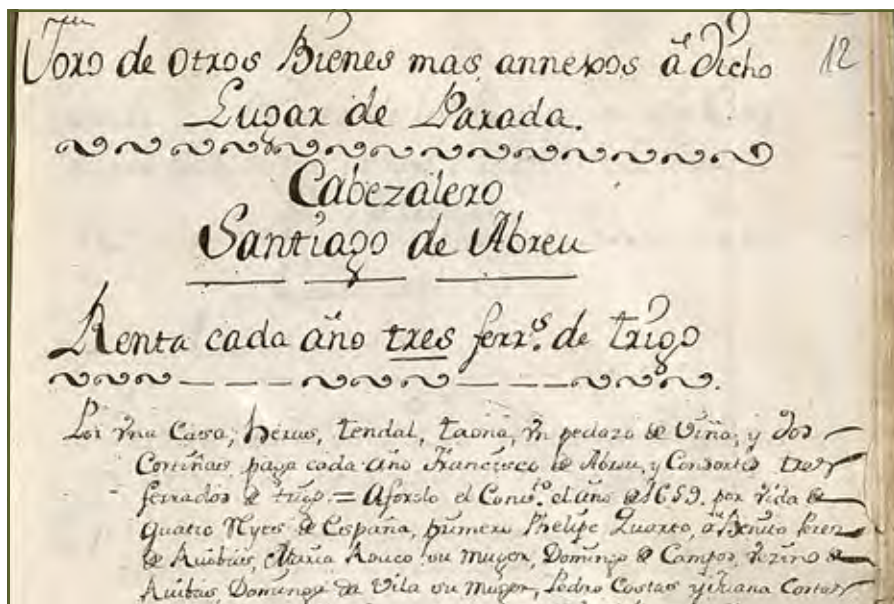 Foro de otros Bienes mas annexos â dicho 12
Lugar de Parada.
Cabezalero
Santiago de Abreu
Renta cada año tres ferr.os de trigo
Por vna Casa, heras, tendal, taona, vn pedazo de Viña, y dos
Cortiñas paga cada año Francisco de Abreu, y Consortes tres
ferrados de trigo. = Aforolo el Conv.to el año de 1659. por vida de
quatro Reyes de España, primero Phelipe Quarto, â Benito Perez
de Ruibas, Maria Rouco su muger, Domingo de Campos, vezino de
Ruibas, Dominga da Vila su muger, Pedro Costas y Juana Cortes